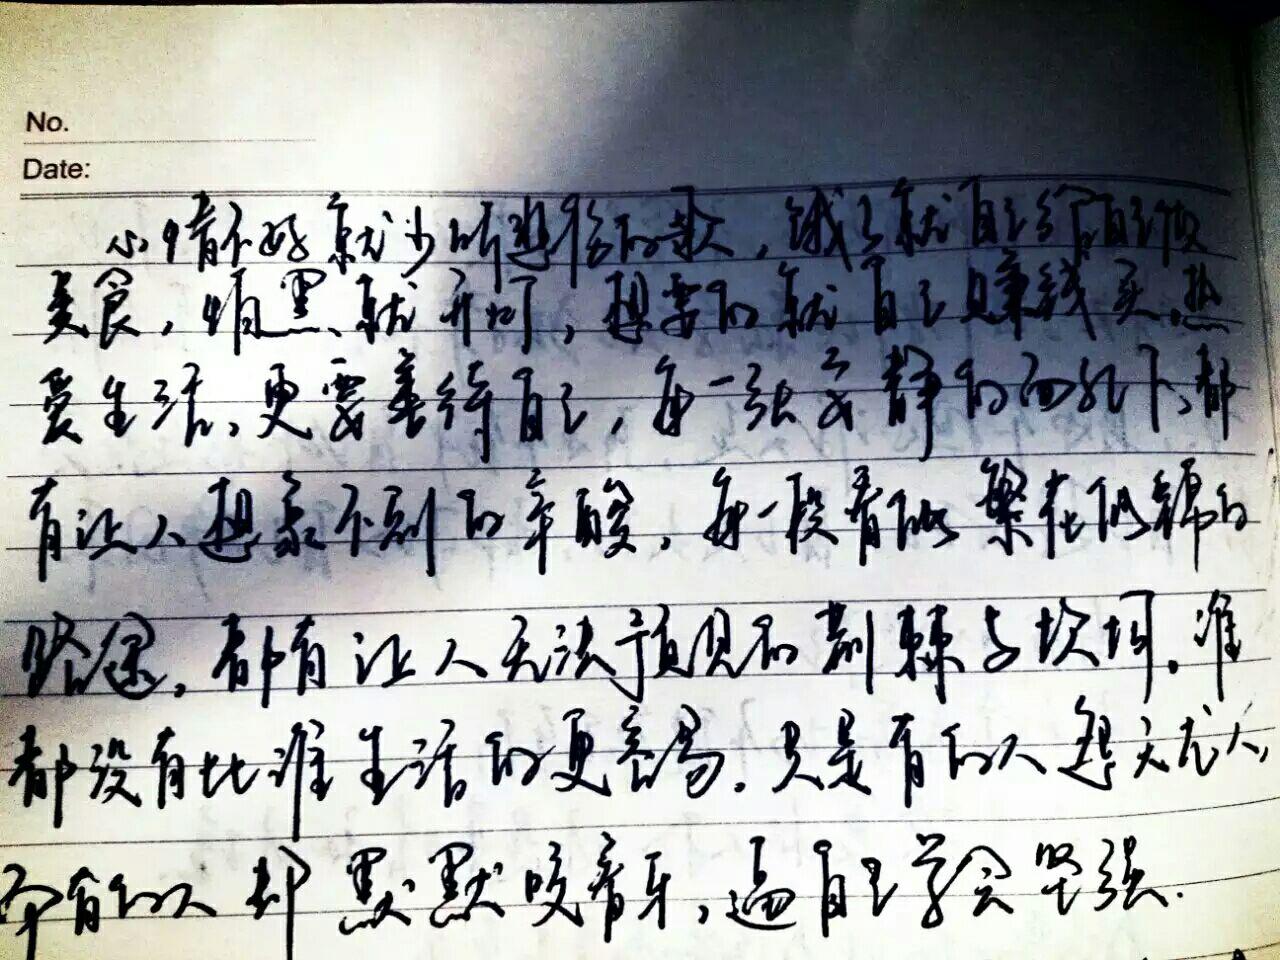 No.
Date:
心情不好就少听悲伤的歌，饿了就自己给自己做
美食，怕黑就开灯，想要的就自己赚钱买，热
爱生活，更要善待自己，每一张安静的面孔下，都
有让人想象不到的辛酸，每一段看似繁花似锦的
路途，都有让人无法预见的荆棘与坎坷。谁
都没有比谁生活的更容易，只是有的人怨天尤人，
而有的人却默默咬着牙，逼自己学会坚强.